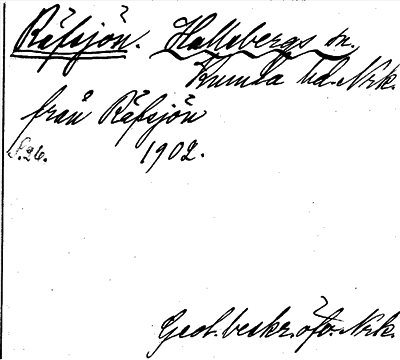 Räfsjön. Hallsbergs sn.
Kumla hd. Nrk.
från Räfsjön
S. 26. 1902.
Geol. beskr. öfv. Nrk.